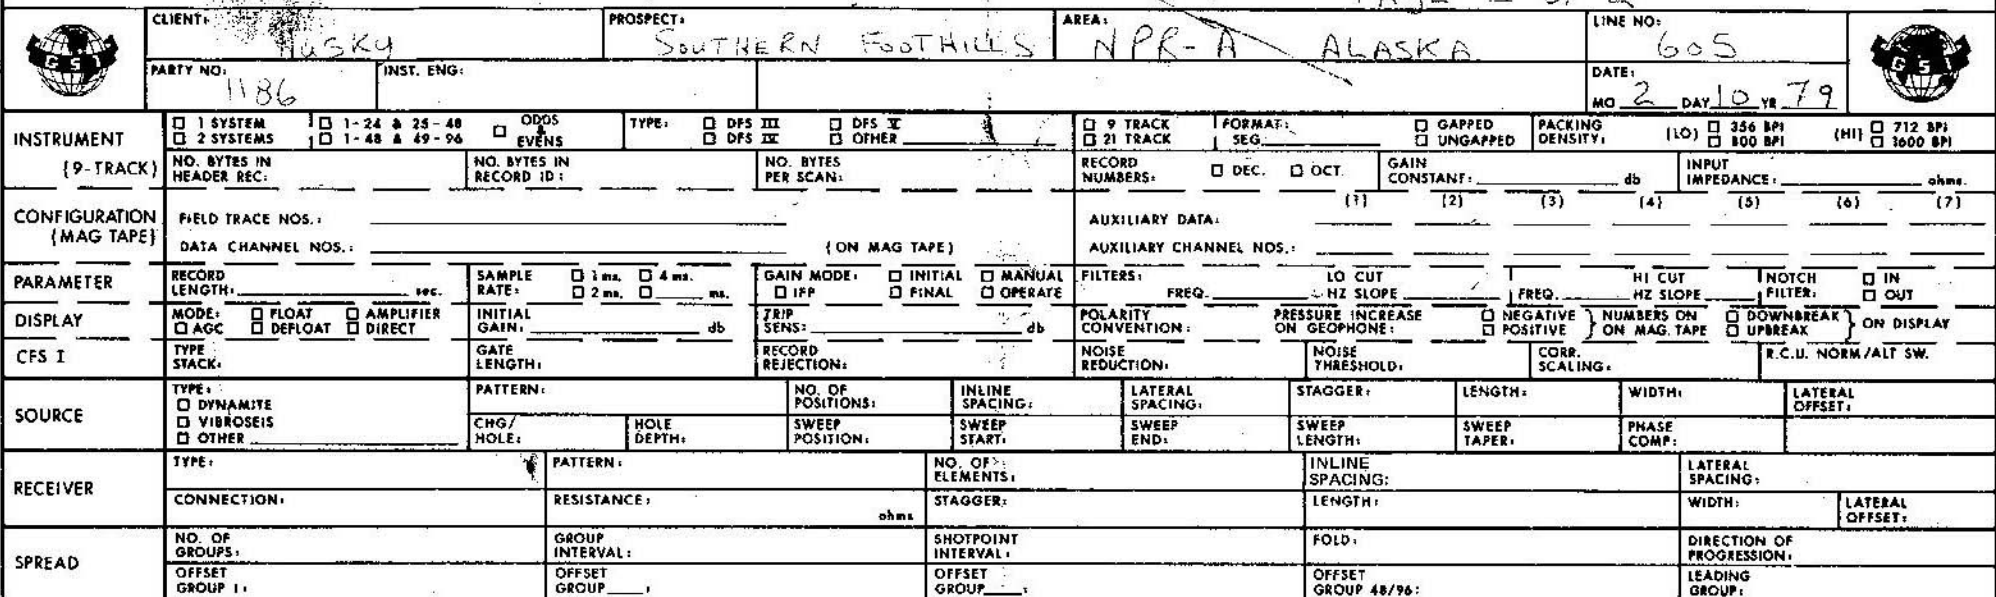 CLIENT: HUSKY PROSPECT: SOUTHERN FOOTHILLS AREA: NPR-A ALASKA LINE NO: 605
GSI GSI
PARTY NO: 1186 INST. ENG: DATE: MO 2 DAY 10 YR 79
INSTRUMENT (9-TRACK) □ 1 SYSTEM □ 1-24 & 25-48 □ ODDS & EVENS TYPE: □ DFS III □ DFS V □ 9 TRACK FORMAT: □ GAPPED PACKING DENSITY: (LO) □ 356 BPI (HI) □ 712 BPI
□ 2 SYSTEMS □ 1-48 & 49-96 □ DFS IV □ OTHER □ 21 TRACK SEG □ UNGAPPED □ 800 BPI □ 1600 BPI
NO. BYTES IN HEADER REC: NO. BYTES IN RECORD ID: NO. BYTES PER SCAN: RECORD NUMBERS: □ DEC. □ OCT. GAIN CONSTANT: db INPUT IMPEDANCE: ohms.
CONFIGURATION (MAG TAPE) FIELD TRACE NOS.: AUXILIARY DATA: (1) (2) (3) (4) (5) (6) (7)
DATA CHANNEL NOS.: (ON MAG TAPE) AUXILIARY CHANNEL NOS.:
PARAMETER RECORD LENGTH: sec. SAMPLE RATE: □ 1 ms. □ 4 ms. □ 2 ms. □ ms. GAIN MODE: □ INITIAL □ MANUAL □ IFP □ FINAL □ OPERATE FILTERS: FREQ. LO CUT HZ SLOPE FREQ. HI CUT HZ SLOPE NOTCH FILTER: □ IN □ OUT
DISPLAY MODE: □ FLOAT □ AMPLIFIER □ AGC □ DEFLOAT □ DIRECT INITIAL GAIN: db TRIP SENS: db POLARITY CONVENTION: PRESSURE INCREASE ON GEOPHONE: □ NEGATIVE □ POSITIVE } NUMBERS ON MAG. TAPE □ DOWNBREAK □ UPBREAK } ON DISPLAY
CFS I TYPE STACK: GATE LENGTH: RECORD REJECTION: NOISE REDUCTION: NOISE THRESHOLD: CORR. SCALING: R.C.U. NORM/ALT SW.
SOURCE TYPE: □ DYNAMITE □ VIBROSEIS □ OTHER PATTERN: NO. OF POSITIONS: INLINE SPACING: LATERAL SPACING: STAGGER: LENGTH: WIDTH: LATERAL OFFSET:
CHG/HOLE: HOLE DEPTH: SWEEP POSITION: SWEEP START: SWEEP END: SWEEP LENGTH: SWEEP TAPER: PHASE COMP:
RECEIVER TYPE: PATTERN: NO. OF ELEMENTS: INLINE SPACING: LATERAL SPACING:
CONNECTION: RESISTANCE: ohms STAGGER: LENGTH: WIDTH: LATERAL OFFSET:
SPREAD NO. OF GROUPS: GROUP INTERVAL: SHOTPOINT INTERVAL: FOLD: DIRECTION OF PROGRESSION:
OFFSET GROUP 1: OFFSET GROUP : OFFSET GROUP : OFFSET GROUP 48/96: LEADING GROUP: